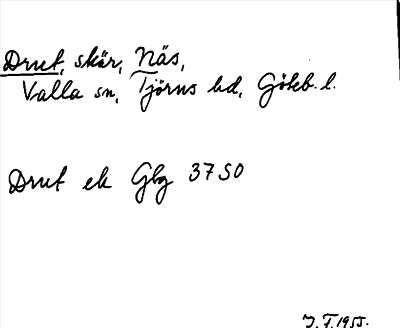 Drut, skär, Näs,
Valla sn, Tjörns hd, Göteb. l.
Drut ek Gbg 37 SO
J. F. 1955.